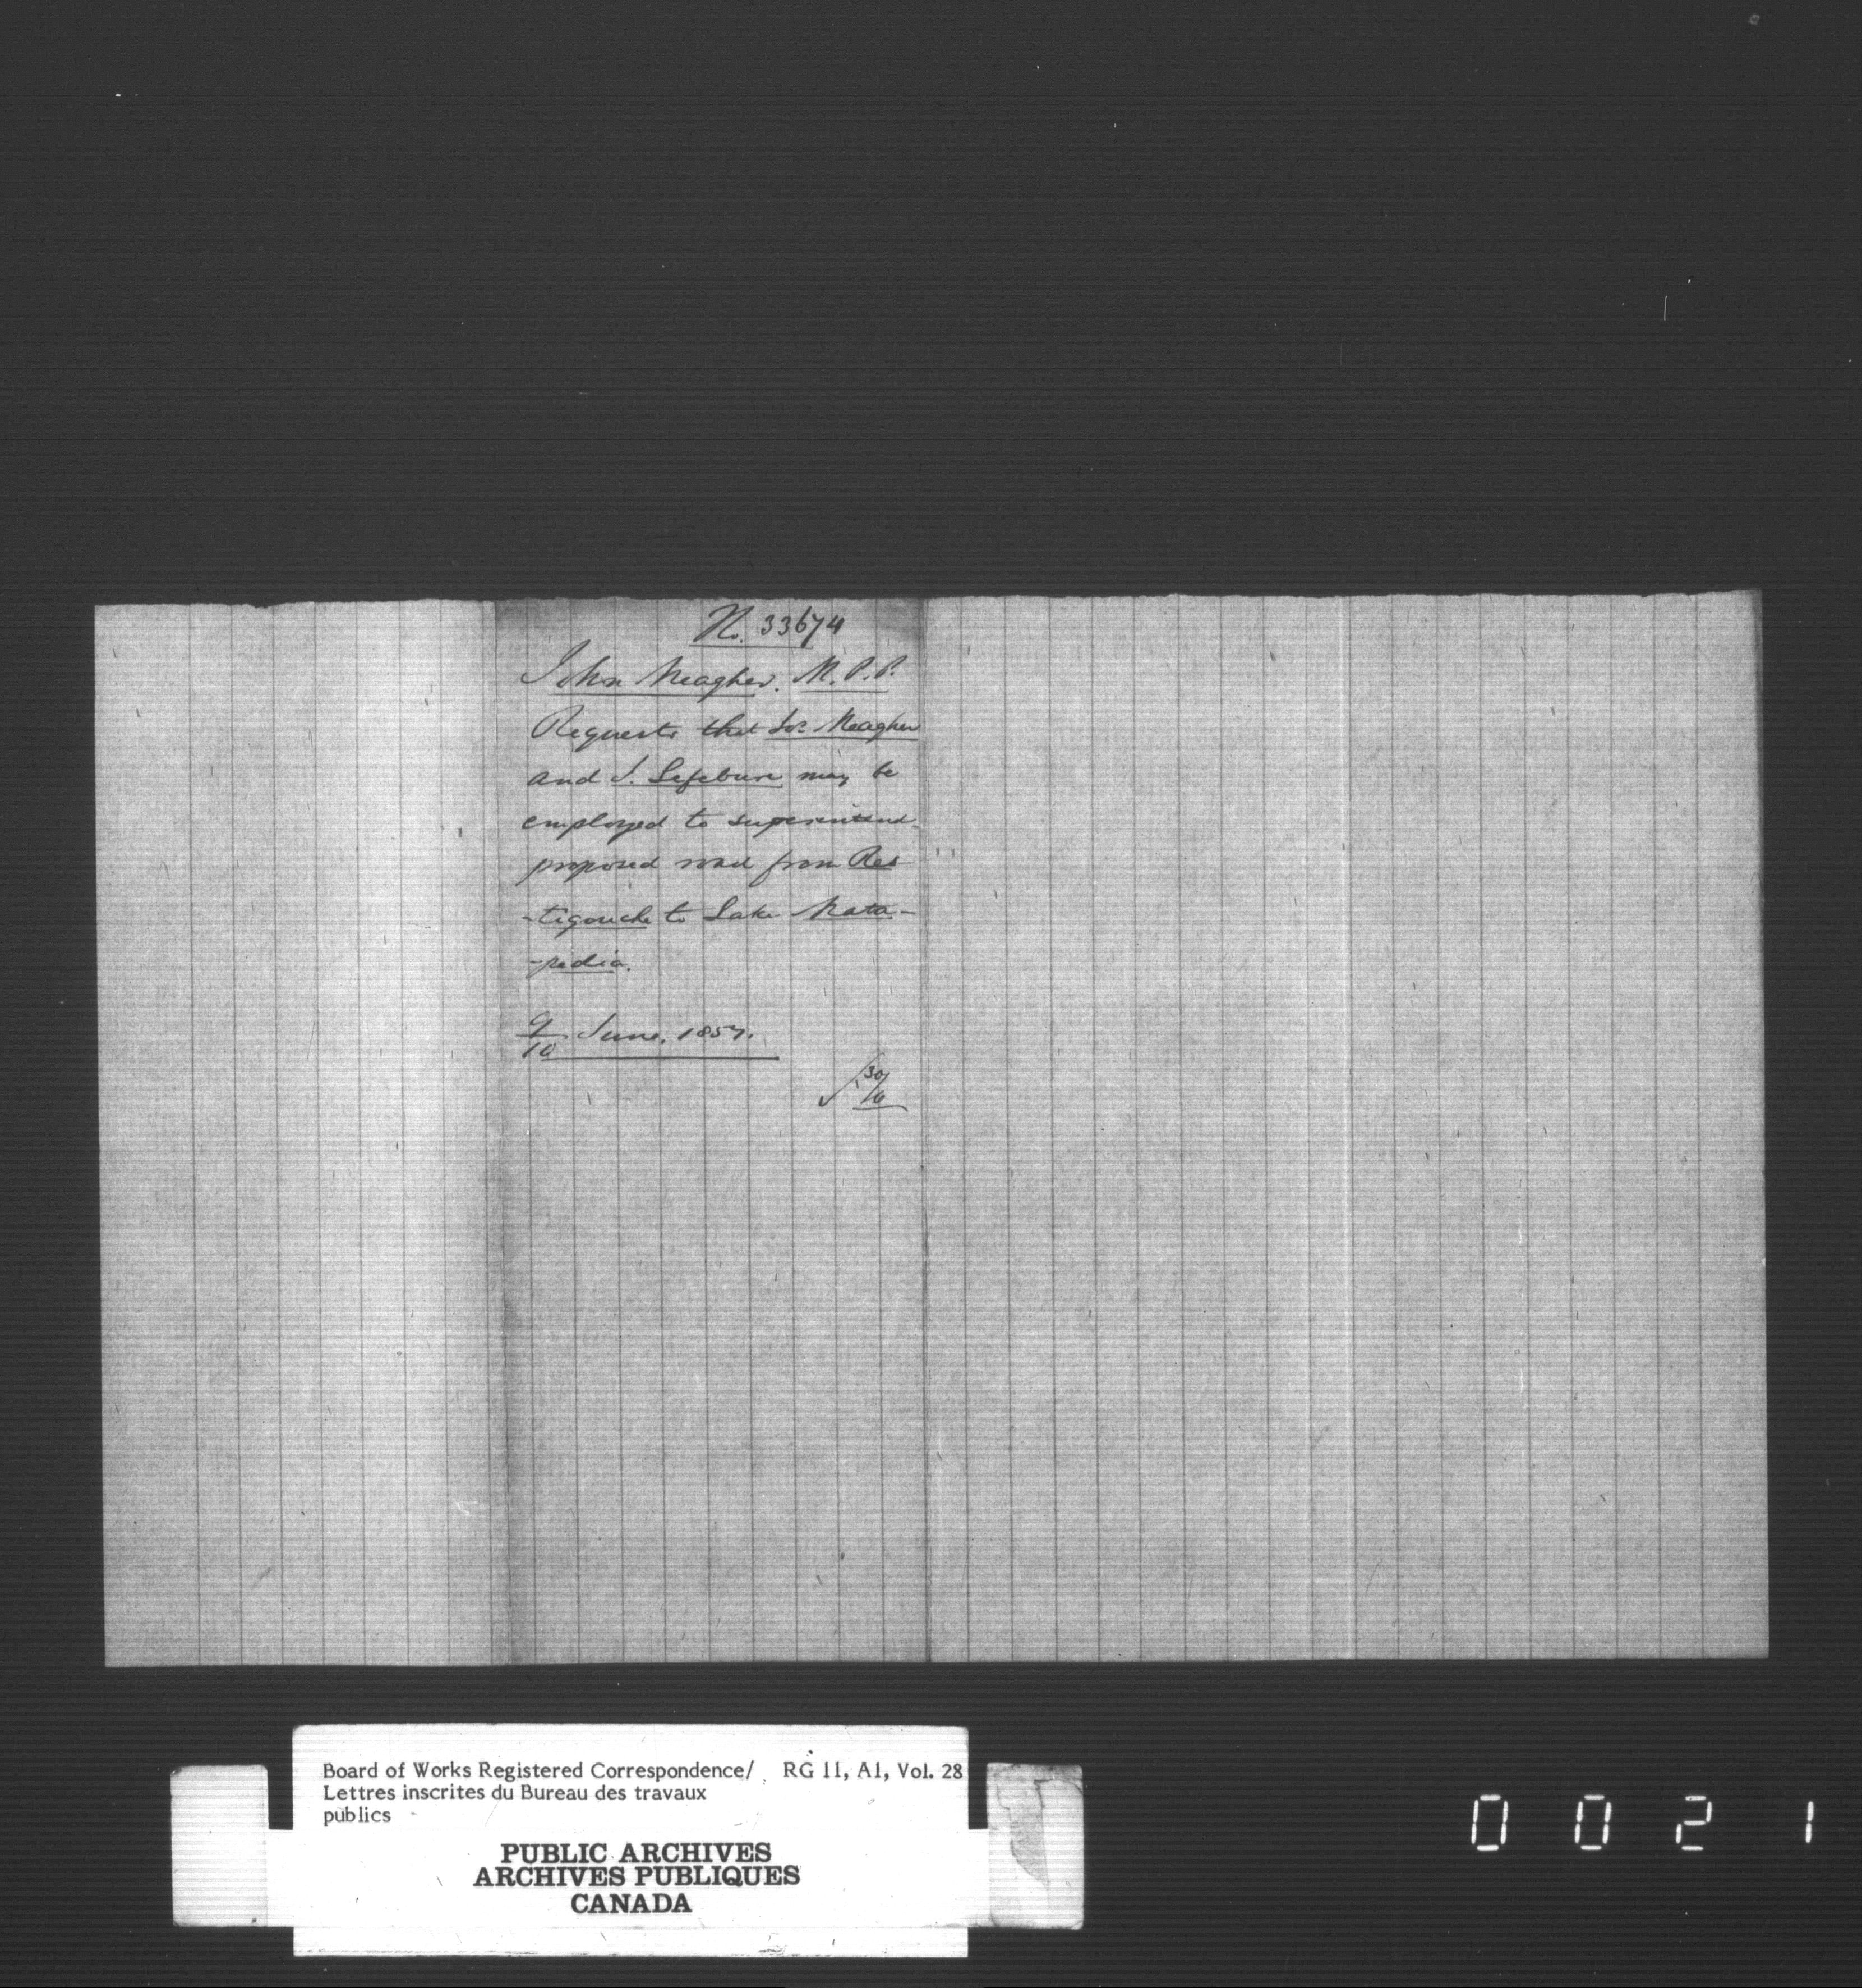 No. 33674
John Meagher. M.P.P.
Requests that Jos. Meagher
and J. Lefebvre may be
employed to superintend
proposed road from Res
-tigouche to Lake Mata-
-pedia.
9/10 June, 1857.
30/6
Board of Works Registered Correspondence/ RG 11, A1, Vol. 28
Lettres inscrites du Bureau des travaux
publics
PUBLIC ARCHIVES
ARCHIVES PUBLIQUES
CANADA
0021